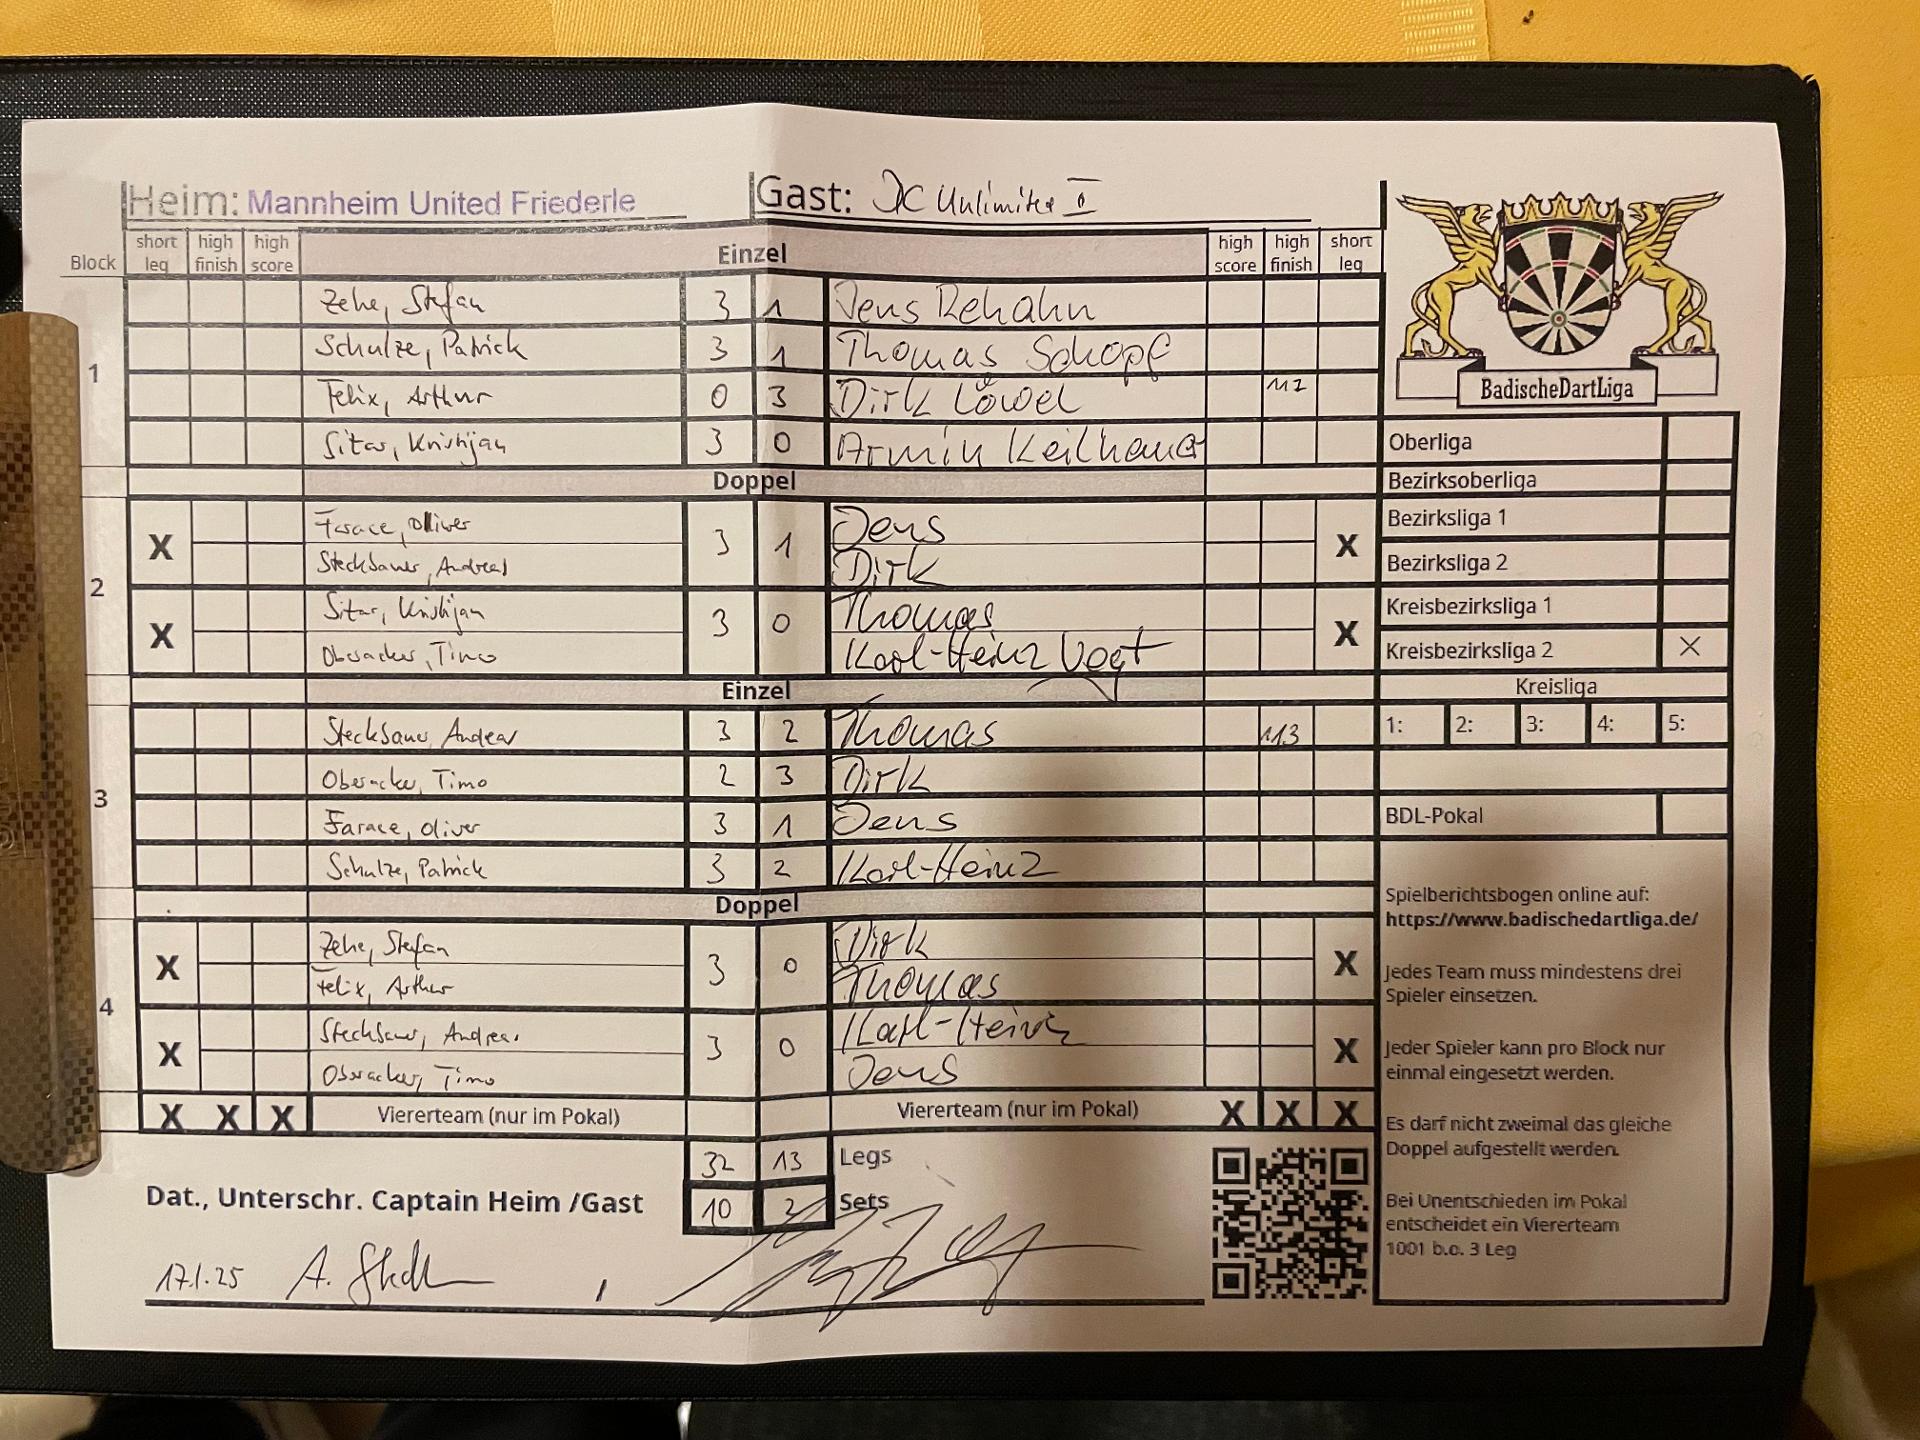 Heim: Mannheim United Friederle Gast: DC Unlimited II
Block short leg high finish high score Einzel high score high finish short leg
1
Zehe, Stefan 3 1 Jens Rehahn
Schulze, Patrick 3 1 Thomas Schopf
Felix, Arthur 0 3 Dirk Löwel 112
Sitar, Kristijan 3 0 Armin Keilhauer
Doppel
2
X Farace, Oliver 3 1 Jens X
Stecksauer, Andreas Dirk
X Sitar, Kristijan 3 0 Thomas X
Oberacker, Timo Karl-Heinz Vogt
Einzel
3
Stecksauer Andreas 3 2 Thomas 113
Oberacker, Timo 2 3 Dirk
Farace, Oliver 3 1 Jens
Schulze, Patrick 3 2 Karl-Heinz
Doppel
4
X Zehe, Stefan 3 0 Dirk X
Felix, Arthur Thomas
X Stecksauer, Andreas 3 0 Karl-Heinz X
Oberacker, Timo Jens
X X X Viererteam (nur im Pokal) Viererteam (nur im Pokal) X X X
32 13 Legs
Dat., Unterschr. Captain Heim /Gast 10 2 Sets
17.1.25
BadischeDartLiga
Oberliga
Bezirksoberliga
Bezirksliga 1
Bezirksliga 2
Kreisbezirksliga 1
Kreisbezirksliga 2 X
Kreisliga
1: 2: 3: 4: 5:
BDL-Pokal
Spielberichtsbogen online auf:
https://www.badischedartliga.de/
Jedes Team muss mindestens drei
Spieler einsetzen.
Jeder Spieler kann pro Block nur
einmal eingesetzt werden.
Es darf nicht zweimal das gleiche
Doppel aufgestellt werden.
Bei Unentschieden im Pokal
entscheidet ein Viererteam
1001 b.o. 3 Leg